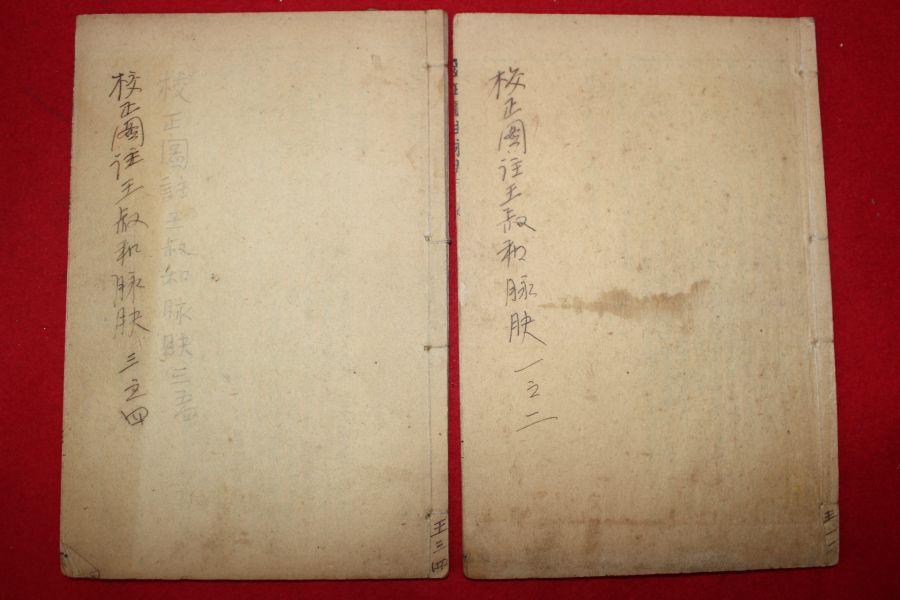 校正圖註王叔和脉肤 一之二
王 一 二
校正圖註王叔知脉肤三
校正圖註王叔和脉肤 三之四
王三四